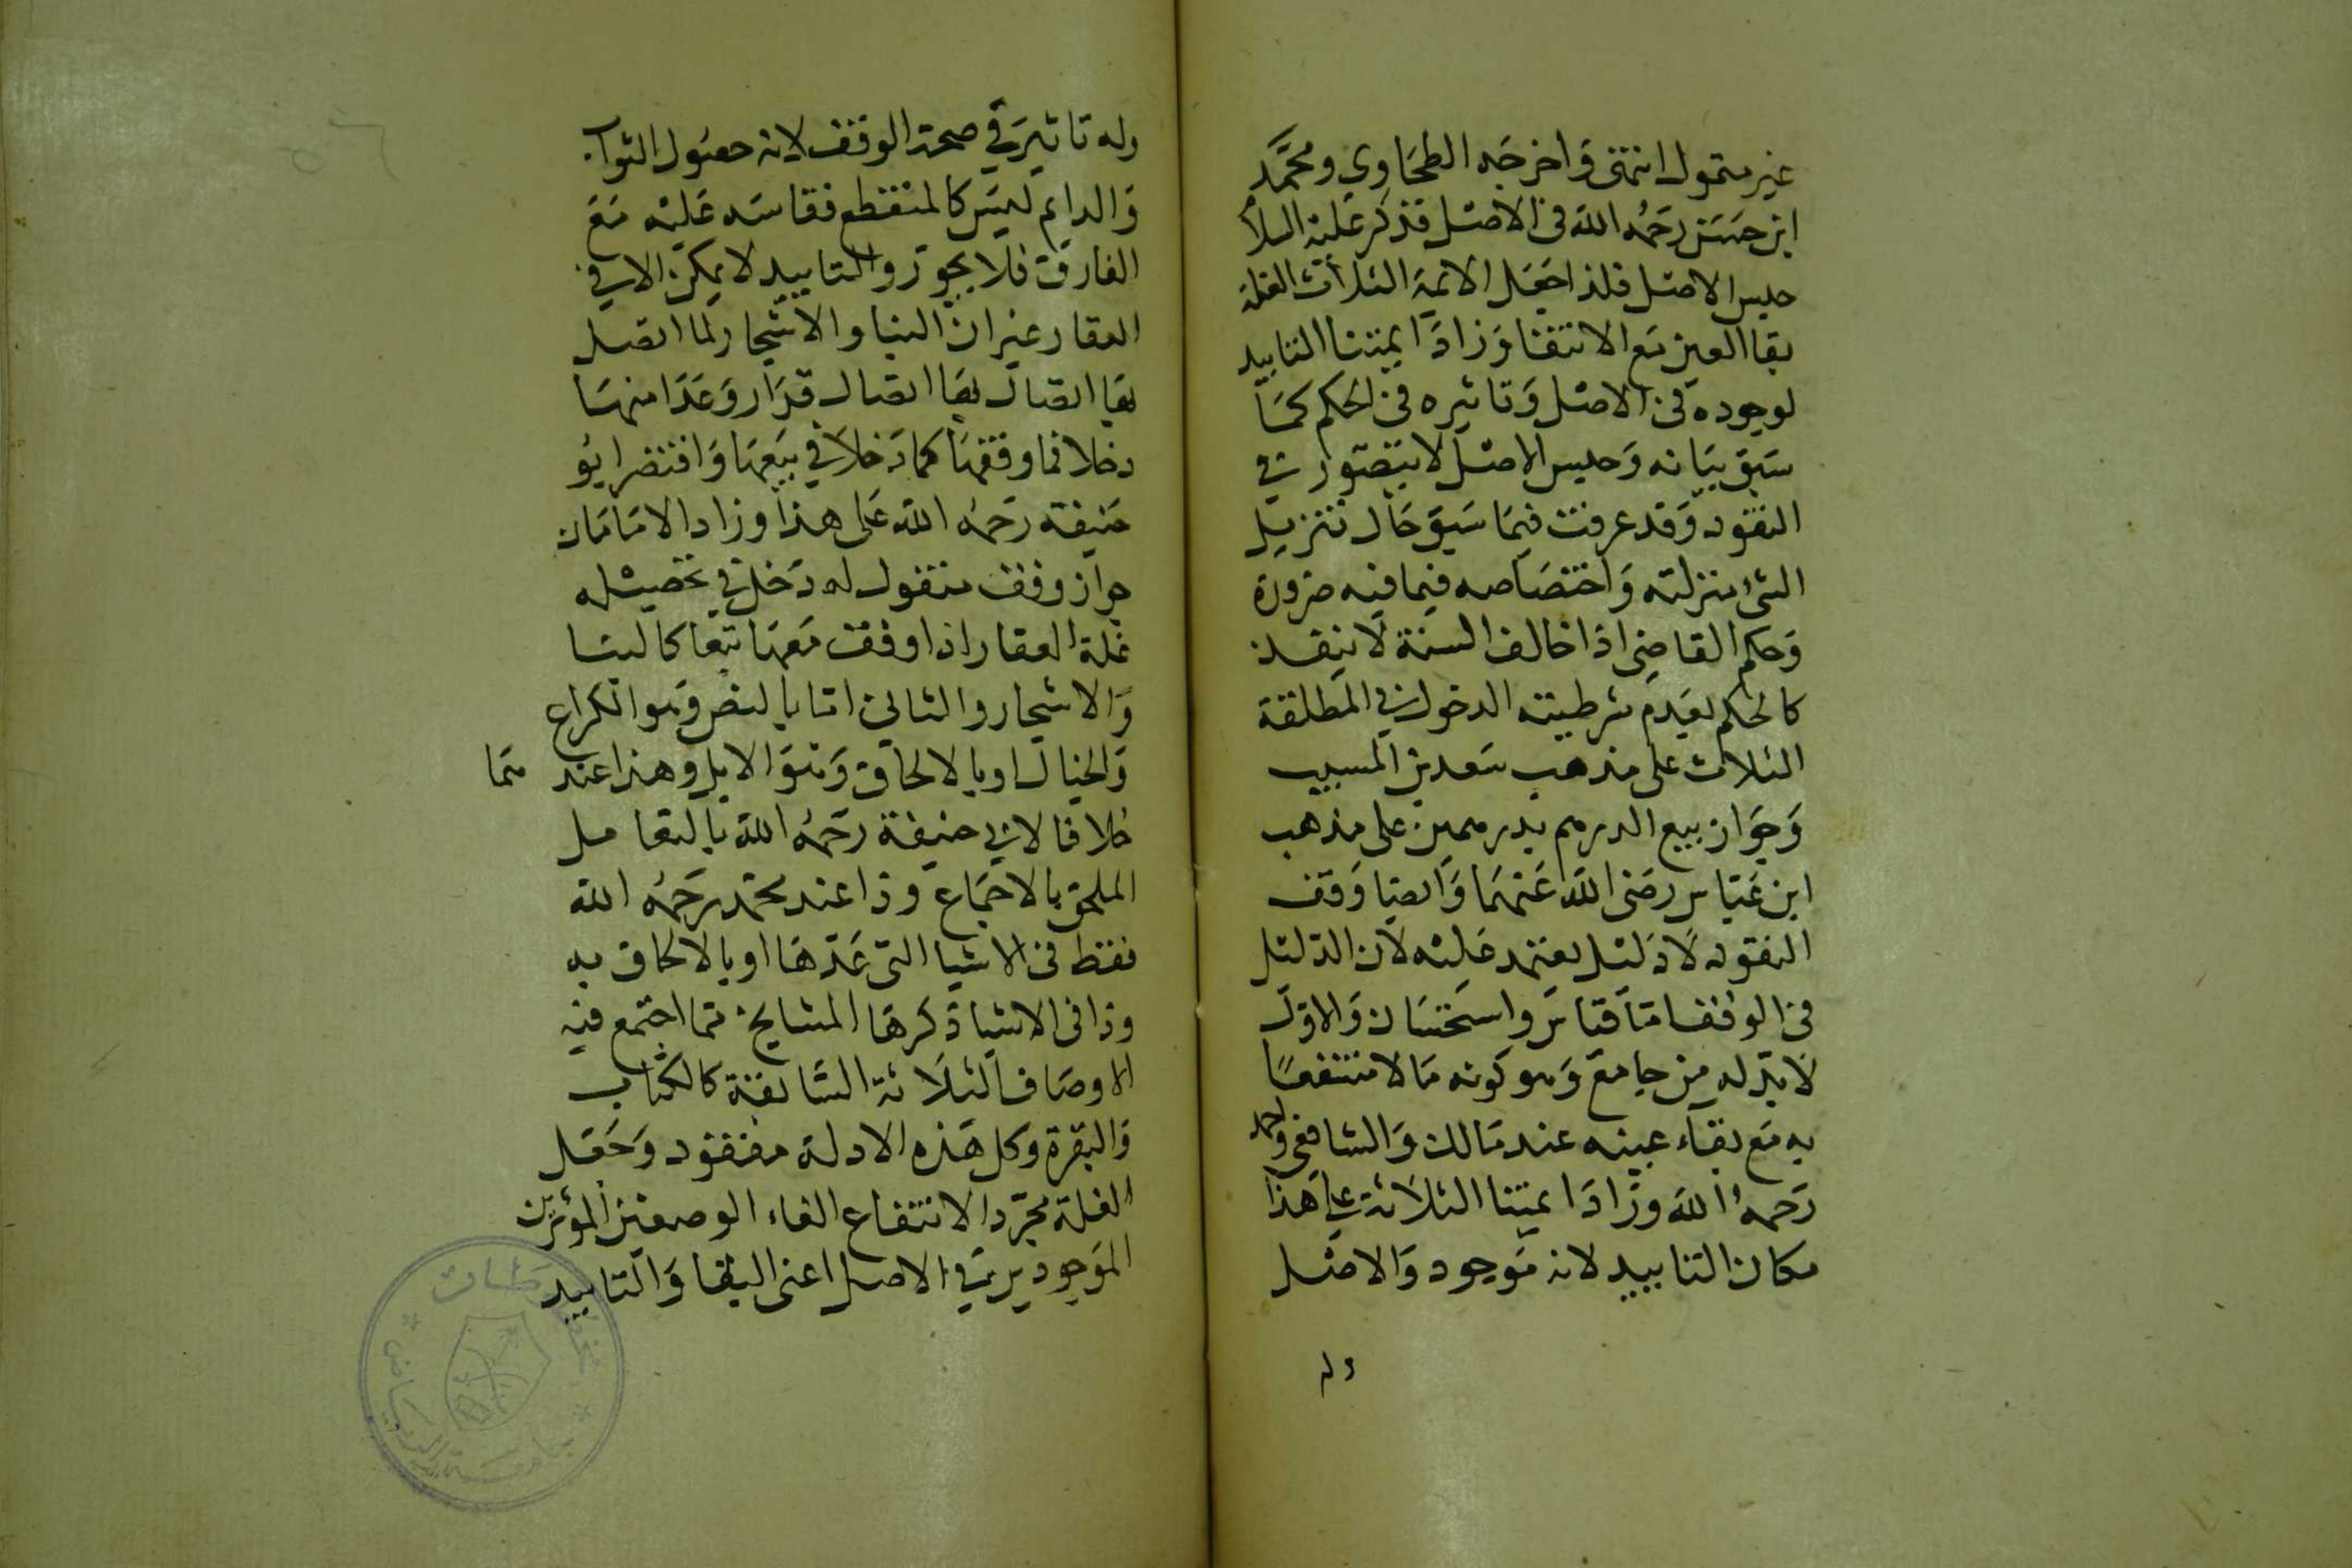 غير متمول انتهى وَاخرجَه الطحَاوي ومحمَّد
ابن حسَن رَحمَه اللّه فى الاصْل فذكر عَليْه السلا
حبس الاصْل فلذا جَعَل الايمة الثلاث العلة
بقا العين مَع الانتفا وَزادَ ايمتنا التابيد
لوجوده فى الاصْل وَتاثيره فى الحكم كمَا
سَبق بيَانه وَحبس الاصْل لا يتصَوّر في
النقود وَقد عرفت فيمَا سَبق حَال تنزيل
الشئ منزلته وَاختصَاصه فيما فيه ضرورة
وَحكم القاضِى اذا خالف السنة لا ينفذ
كالحكم بعَدم شرطية الدخول في المطلقة
الثلاث على مذهب سَعد بن المسيب
وَجوَاز بيع الدرهم بدرهمين على مذهب
ابن عَبّاس رضى اللّه عَنهمَا وَايضا وَقف
النقود لا دَليْل يعتمد عَليْه لان الدّليْل
فى الوقف امّا قيَاس وَاستحسَان وَالاوّل
لا بدّ له من جامع وَهو كونه مَالا منتفعًا
به مَع بقاء عينه عند مَالك وَالشافعى واحمد
رَحمهُ اللّه وزادَ ايمتنا الثلاثة على هَذا
مكان التابيد لانه مَوجود وَالاصْل
وله
وله تاثير في صحة الوقف لانه حصُول الثواب
وَالدايم ليسَ كالمنقطع فقاسَه عَليْه مَعَ
الفارق فلا يجوز والتابيد لا يمكن الا في
العقار غير ان البنا والاشجار لما اتصل
بهَا اتصال بهَا اتصال قرَار وَعَدَا منهسَا
دخلا فى وقفهَا كما دَخلا في بيَعهَا وَاقتصَر ابُو
حَنيفة رَحمهُ اللّه عَلى هذا وزاد الامَامَان
جواز وقف منقول له دَخل في تحصيْل
غلة العقار اذا وقف مَعهَا تبعا كالبنا
وَالاشجار والثاني امّا بالنص وَهو الكراع
وَالخيَال او بالالحاق وَهوَ الابل وهذا عندهمَا
خلافا لابي حنيفة رَحمهُ اللّه بالتعامل
الملحق بالاجمَاع وذا عند محمد رَحمهُ اللّه
فقط فى الاشيا التى عَدّهَا او بالالحاق به
وذا فى الاشيا ذكرهَا المشايخ ممّا اجتمع فيه
الاوصَاف الثلاثة السَّابقة كالكتاب
وَالبقرة وكل هَذه الادلة مفقود وَجَعَل
العلة مجرّد الانتفاع الغاء الوصفين المؤثرين
الموَجودين في الاصل اعنى البقا وَالتابيد
مخطوطات
جامعة الرياض